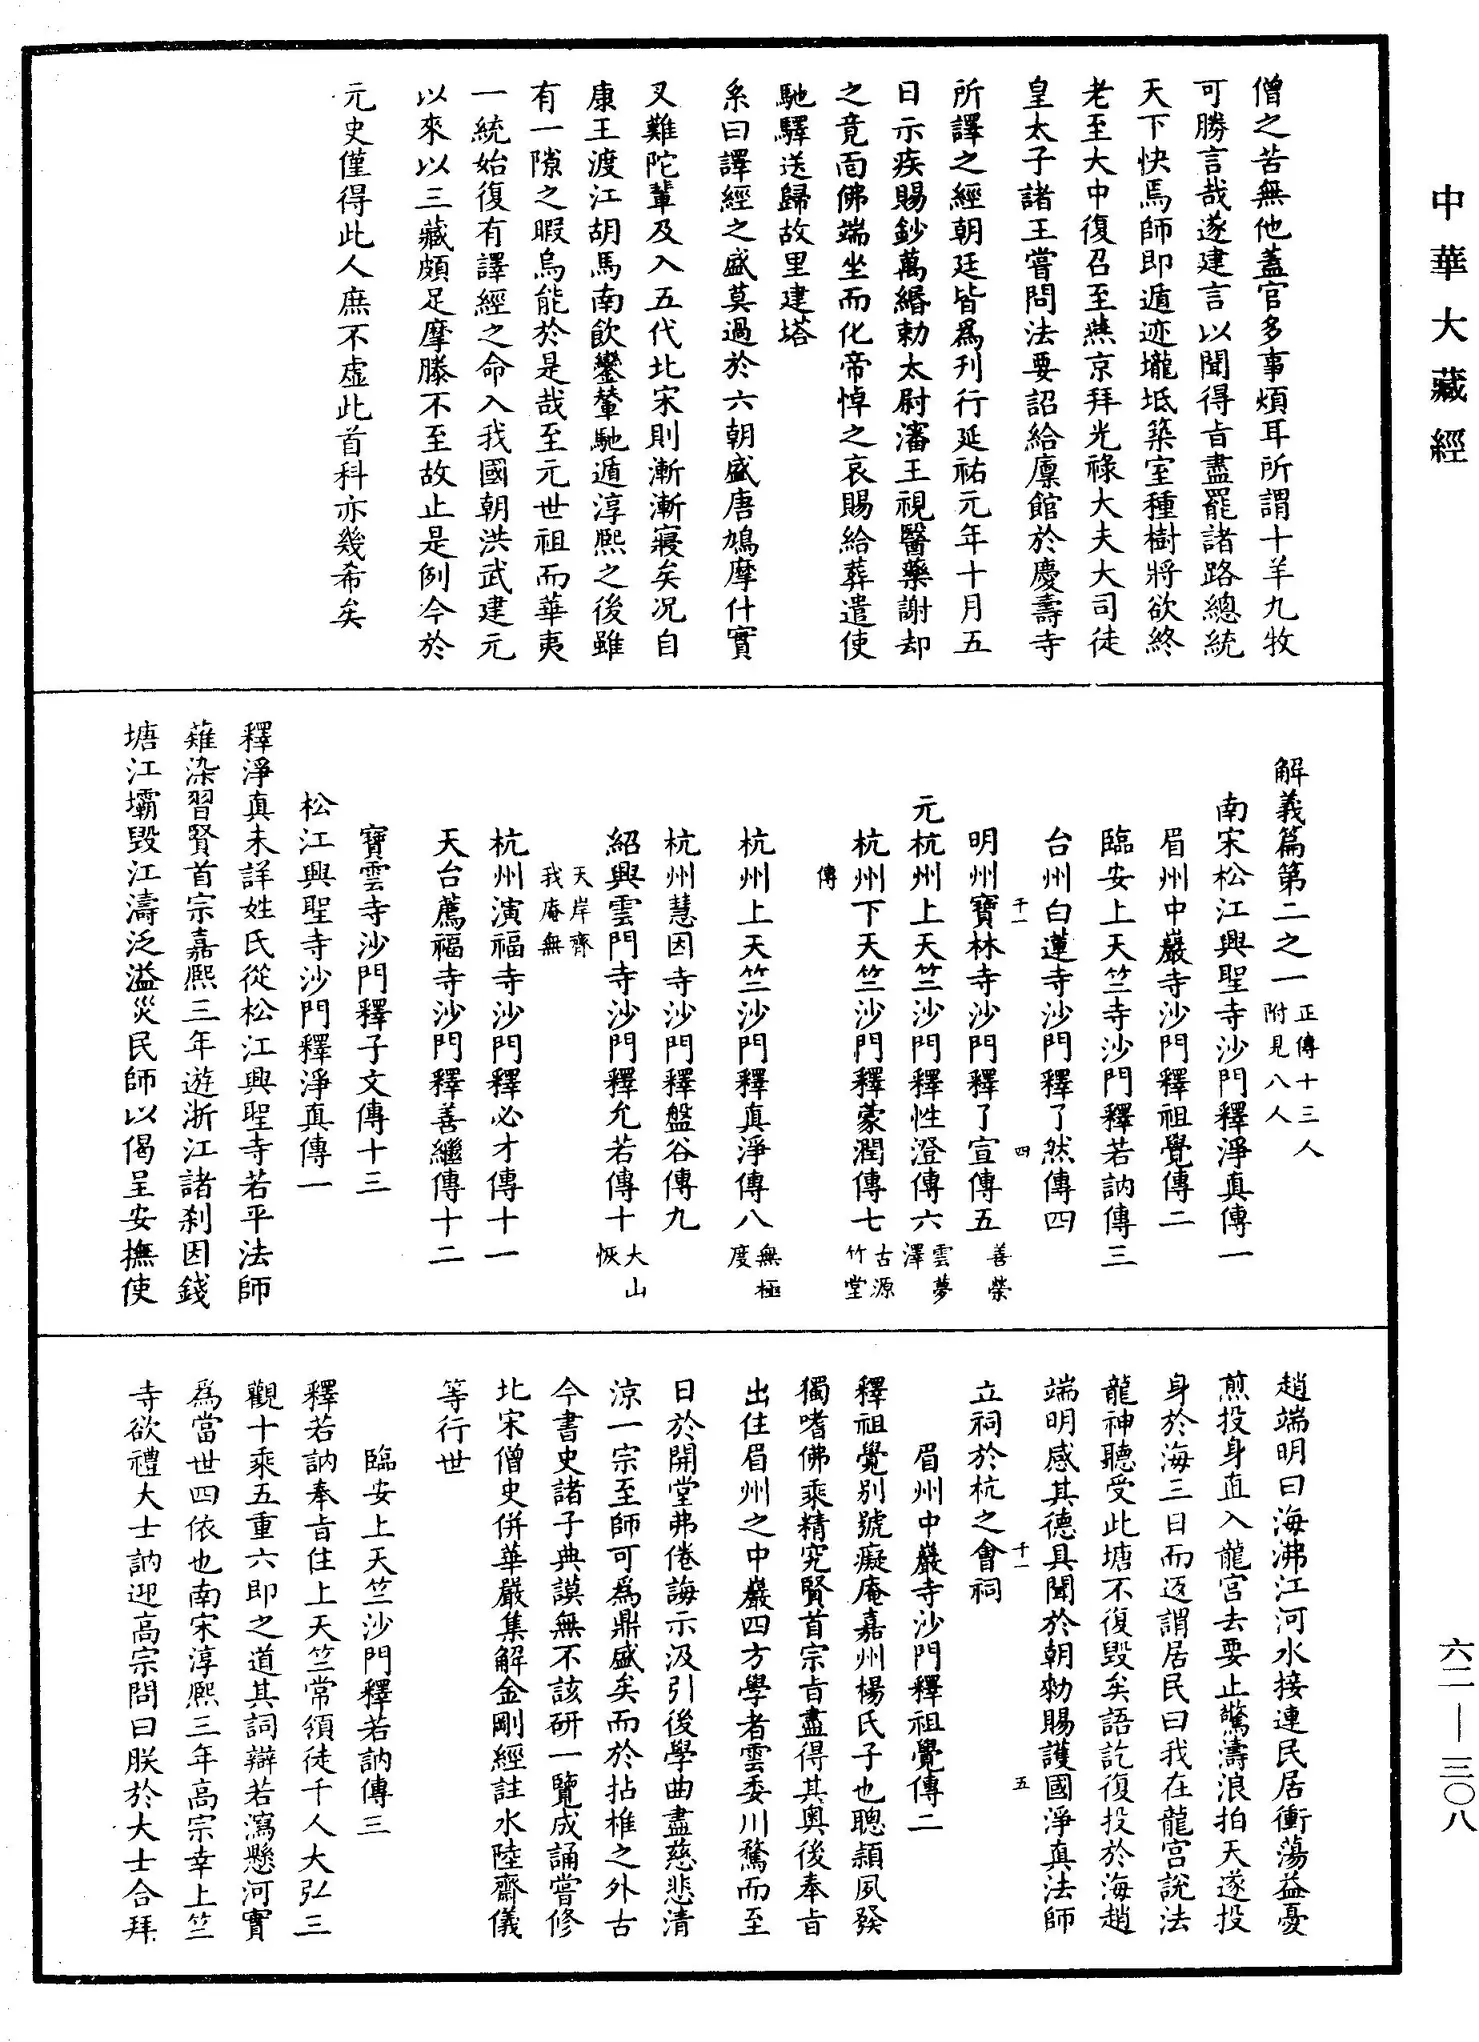 中華大藏經
僧之苦無他蓋官多事煩耳所謂十羊九牧
可勝言哉遂建言以聞得旨盡罷諸路總統
天下快焉師即遁迹壠坻築室種樹將欲終
老至大中復召至燕京拜光祿大夫大司徒
皇太子諸王嘗問法要詔給廩館於慶壽寺
所譯之經朝廷皆為刊行延祐元年十月五
日示疾賜鈔萬緡勅太尉瀋王視醫藥謝却
之竟面佛端坐而化帝悼之哀賜給葬遣使
馳驛送歸故里建塔
系曰譯經之盛莫過於六朝盛唐鳩摩什實
叉難陀輩及入五代北宋則漸漸寢矣況自
康王渡江胡馬南飲鑾輦馳遁淳熙之後雖
有一隙之暇烏能於是哉至元世祖而華夷
一統始復有譯經之命入我國朝洪武建元
以來以三藏頗足摩滕不至故止是例今於
元史僅得此人庶不虛此首科亦幾希矣
解義篇第二之一 正傳十三人 附見八人
南宋松江興聖寺沙門釋淨真傳一
眉州中巖寺沙門釋祖覺傳二
臨安上天竺寺沙門釋若訥傳三
台州白蓮寺沙門釋了然傳四
千一 四
明州寶林寺沙門釋了宣傳五 善榮
元杭州上天竺沙門釋性澄傳六 雲夢澤
杭州下天竺沙門釋蒙潤傳七 古源 竹堂
傳
杭州上天竺沙門釋真淨傳八 無極度
杭州慧因寺沙門釋盤谷傳九
紹興雲門寺沙門釋允若傳十 大山恢
天岸齊 我庵無
杭州演福寺沙門釋必才傳十一
天台薦福寺沙門釋善繼傳十二
寶雲寺沙門釋子文傳十三
松江興聖寺沙門釋淨真傳一
釋淨真未詳姓氏從松江興聖寺若平法師
薙染習賢首宗嘉熙三年遊浙江諸剎因錢
塘江壩毀江濤泛溢災民師以偈呈安撫使
趙端明曰海沸江河水接連民居衝蕩益憂
煎投身直入龍宮去要止驚濤浪拍天遂投
身於海三日而返謂居民曰我在龍宮說法
龍神聽受此塘不復毀矣語訖復投於海趙
端明感其德具聞於朝勅賜護國淨真法師
千一 五
立祠於杭之會祠
眉州中巖寺沙門釋祖覺傳二
釋祖覺別號癡庵嘉州楊氏子也聰頴夙發
獨嗜佛乘精究賢首宗旨盡得其奧後奉旨
出住眉州之中巖四方學者雲委川騖而至
日於開堂弗倦誨示汲引後學曲盡慈悲清
涼一宗至師可為鼎盛矣而於拈椎之外古
今書史諸子典謨無不該研一覽成誦嘗修
北宋僧史併華嚴集解金剛經註水陸齋儀
等行世
臨安上天竺沙門釋若訥傳三
釋若訥奉旨住上天竺常須徒千人大弘三
觀十乘五重六即之道其詞辯若瀉懸河實
為當世四依也南宋淳熙三年高宗幸上竺
寺欲禮大士訥迎高宗問曰朕於大士合拜
六二—三〇八